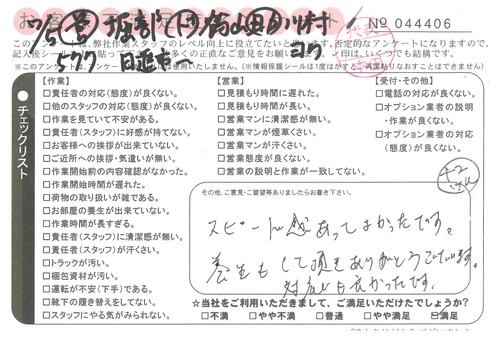 № 044406
このアンケートは、弊社作業スタッフのレベル向上に役立てたいと思います。否定的なアンケートになりますので、
【作業】
□責任者の対応(態度)が良くない。
□他のスタッフの対応(態度)が良くない。
□作業を見ていて不安がある。
□責任者(スタッフ)に好感が持てない。
□お客様への挨拶が出来ていない。
□ご近所への挨拶・気遣いが無い。
□作業開始前の内容確認がなかった。
□作業開始時間が遅れた。
□荷物の取り扱いが雑である。
□お部屋の養生が出来ていない。
□作業時間が長すぎる。
□責任者(スタッフ)に清潔感が無い。
□責任者(スタッフ)が汗くさい。
□トラックが汚い。
□梱包資材が汚い。
□運転が不安(下手)である。
□靴下の履き替えをしてない。
□スタッフにやる気がみられない。
【営業】
□見積もり時間に遅れた。
□見積もり時間が長い。
□営業マンに清潔感が無い。
□営業マンが煙草くさい。
□営業マンが汗くさい。
□営業態度が良くない。
□営業の説明と作業が一致してない。
【受付・その他】
□電話の対応が良くない。
□オプション業者の説明
・作業が良くない。
□オプション業者の対応
(態度)が良くない。
チェックリスト
その他、ご意見・ご要望等ありましたらお書き下さい。
スピード感あってよかったです。
養生もして頂きありがとうございます。
対応も良かったです。
★当社をご利用いただきまして、ご満足いただけたでしょうか?
□不満 □やや不満 □普通 □やや満足 ☑満足